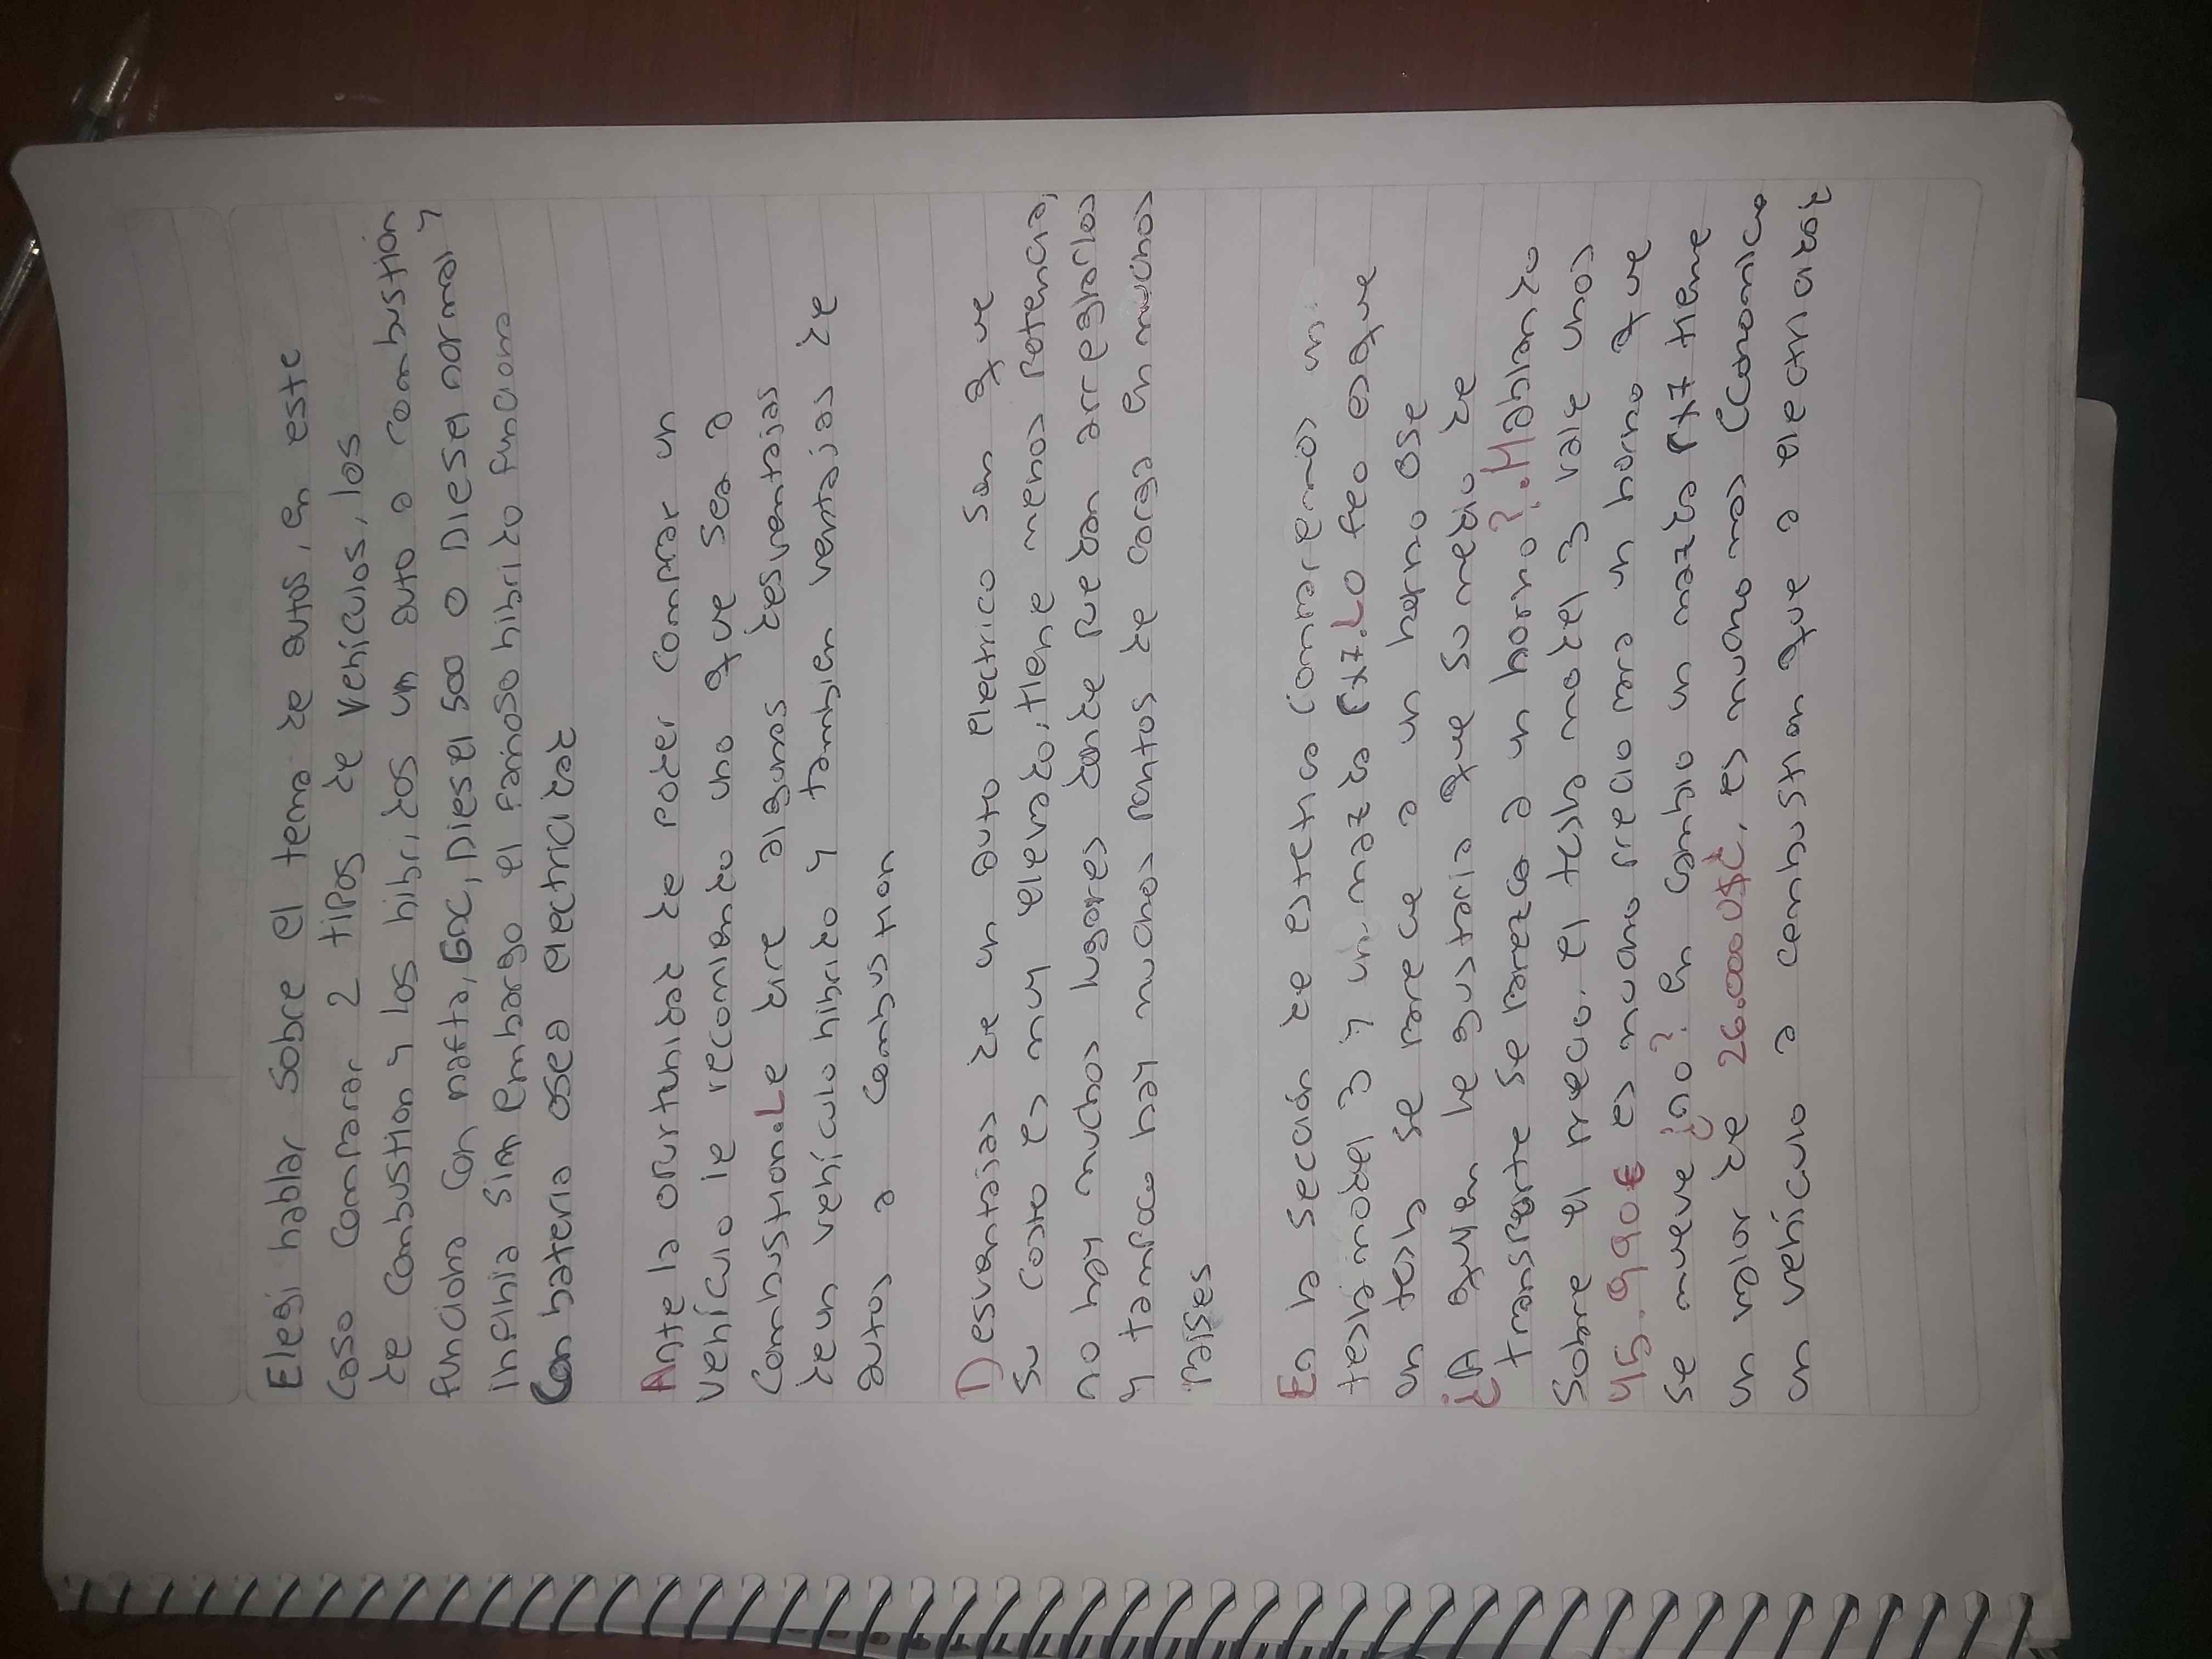 Elegi hablar Sobre el tema de autos, en este
caso comparar 2 tipos de vehículos, los
de combustion y los hibridos un auto a combustión
funciona con nafta, Gnc, Diesel 500 o Diesel normal y
infinia sim embargo el famoso hibrido funciona
Con bateria osea electricidad
Ante la oportunidad de poder comprar un
vehículo le recomiendo uno que sea a
combustion. Le dire algunas desventajas
de un vehículo hibrido y tambien ventajas de
autos a combustion
Desventajas de un auto electrico son que
su costo es muy elevado, tiene menos potencia,
no hay muchos lugares donde puedan arreglarlos
y tampoco hay muchos puntos de carga en muchos
paises
En la sección de estetica comparemos un
tesla model 3 y un mazda rx7. Lo feo es que
un tesla se parece a un horno ose
¿A quien le gustaria que su medio de
transporte se parezca a un horno?. Hablando
sobre el precio. el tesla model 3 vale unos
45.990€ es mucho precio para un horno que
se mueve ¿no? en cambio un mazda rx7 tiene
un valor de 26.000U$C, es mucho mas economico
un vehículo a combustion que a electricidad